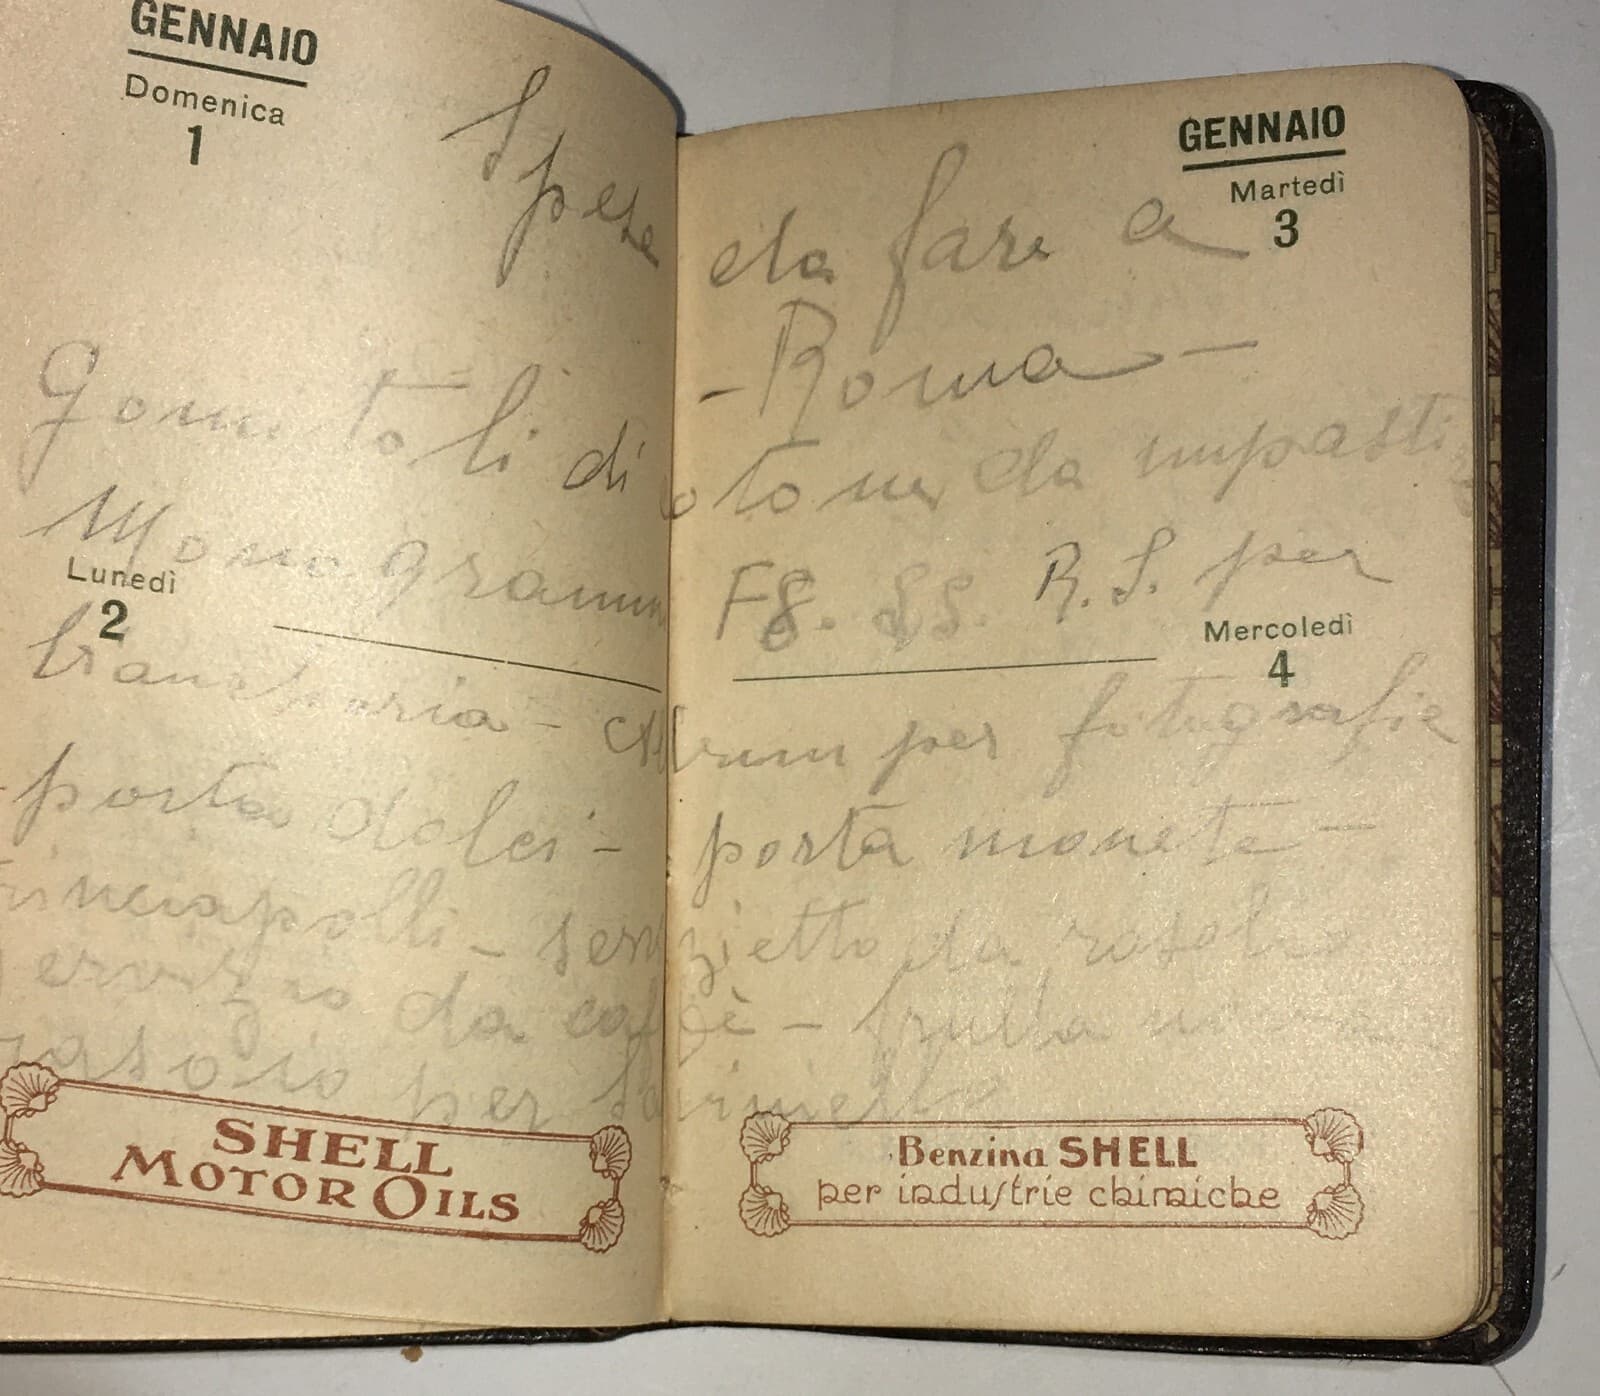 GENNAIO
Domenica
1
GENNAIO
Martedì
3
Spese da fare a
- Roma -
Gomitoli di cotone da
Monogrammi R. S. per
Lunedì
2
Mercoledì
4
- Album per fotografie
porta dolci - porta monete -
trinciapolli - servizietto da rosolio
servizio da caffè -
rasoio per
SHELL
MOTOR OILS
Benzina SHELL
per industrie chimiche